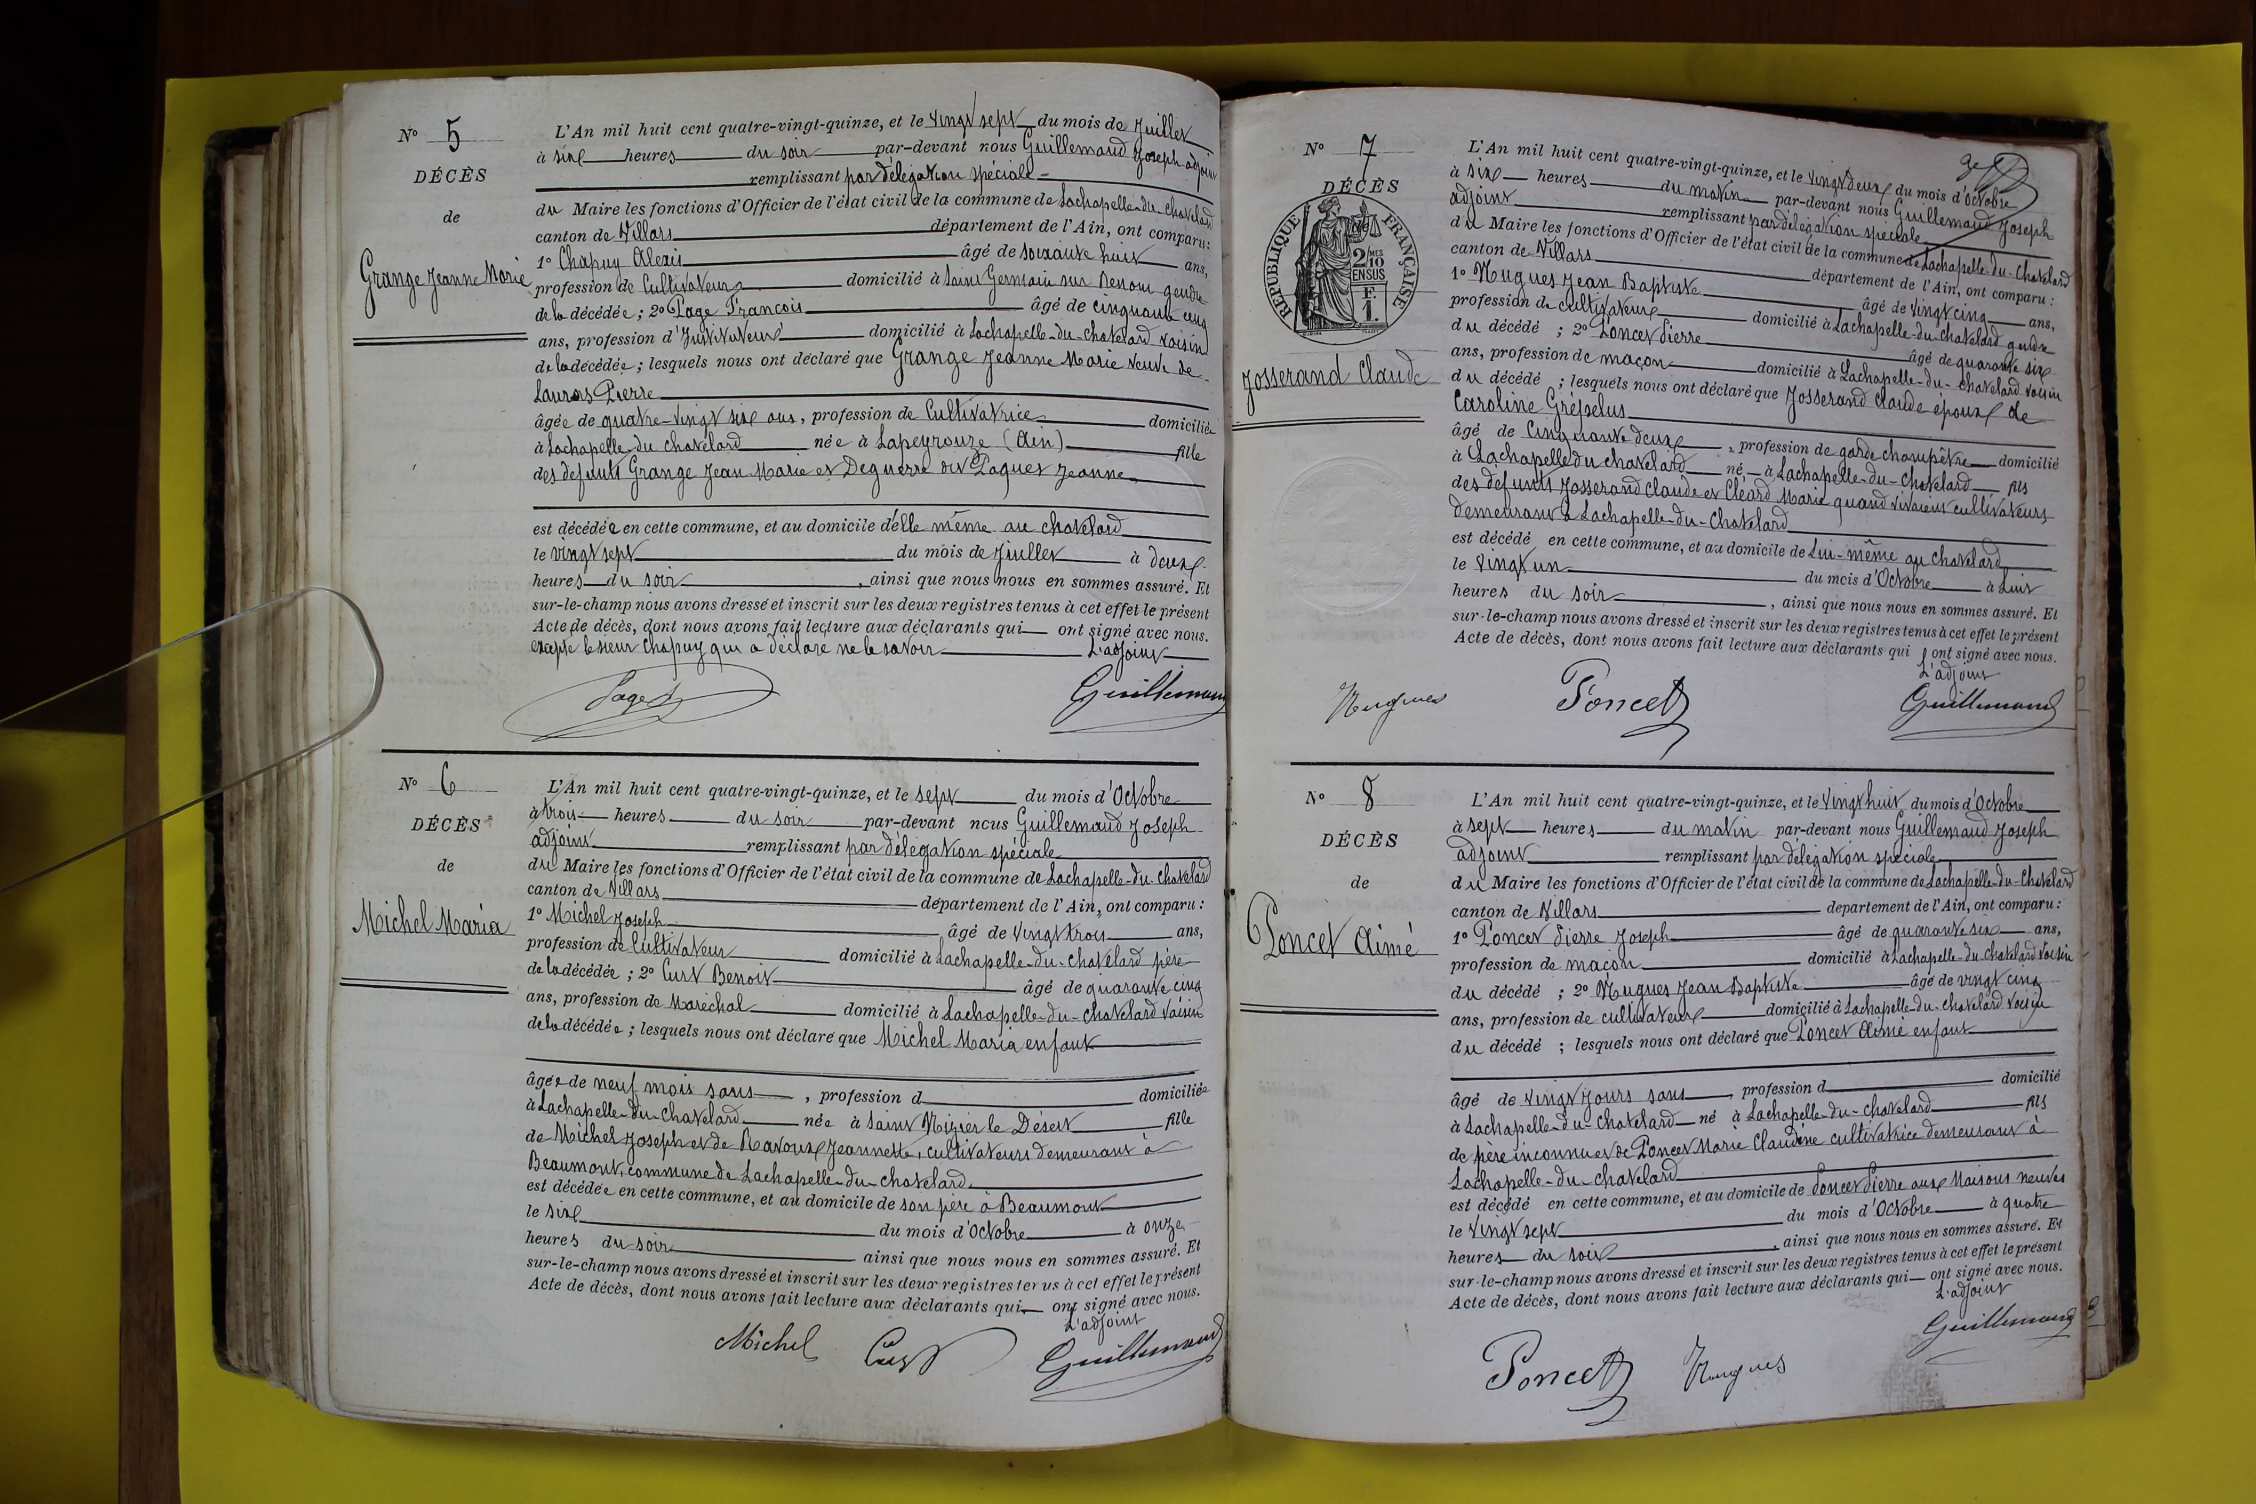 N° 5
DÉCÈS
de
Grange Jeanne Marie
L'An mil huit cent quatre-vingt-quinze, et le vingt sept du mois de Juillet
à six heures du soir par-devant nous Guillemaud Joseph adjoint
remplissant par délégation spéciale
du Maire les fonctions d'Officier de l'état civil de la commune de Lachapelle-du-Chatelard
canton de Villars département de l'Ain, ont comparu :
1° Chapuy Alexis âgé de soixante huit ans,
profession de Cultivateur domicilié à Saint Germain sur Renom gendre
de la décédée ; 2° Page François âgé de cinquante cinq
ans, profession d'Instituteur domicilié à Lachapelle-du-Chatelard voisin
de la décédée ; lesquels nous ont déclaré que Grange Jeanne Marie veuve de
Laurans Pierre
âgée de quatre-vingt six ans, profession de Cultivatrice domiciliée
à Lachapelle du Chatelard née à Lapeyrouze (Ain) fille
des défunts Grange Jean Marie et Deguerre ou Paquet Jeanne
est décédée en cette commune, et au domicile d'elle même au Chatelard
le vingt sept du mois de Juillet à deux
heures du soir, ainsi que nous nous en sommes assuré. Et
sur-le-champ nous avons dressé et inscrit sur les deux registres tenus à cet effet le présent
Acte de décès, dont nous avons fait lecture aux déclarants qui ont signé avec nous.
excepté le sieur Chapuy qui a déclaré ne le savoir L'adjoint
Page Guillemaud
N° 6
DÉCÈS
de
Michel Maria
L'An mil huit cent quatre-vingt-quinze, et le sept du mois d'Octobre
à trois heures du soir par-devant nous Guillemaud Joseph
adjoint remplissant par délégation spéciale
du Maire les fonctions d'Officier de l'état civil de la commune de Lachapelle-du-Chatelard
canton de Villars département de l'Ain, ont comparu :
1° Michel Joseph âgé de vingt trois ans,
profession de Cultivateur domicilié à Lachapelle-du-Chatelard père
de la décédée ; 2° Curt Benoit âgé de quarante cinq
ans, profession de Maréchal domicilié à Lachapelle-du-Chatelard voisin
de la décédée ; lesquels nous ont déclaré que Michel Maria enfant
âgée de neuf mois sans, profession d domiciliée
à Lachapelle-du-Chatelard née à Saint Nizier le Désert fille
de Michel Joseph et de Ravoux Jeannette, cultivateurs demeurant à
Beaumont, commune de Lachapelle-du-Chatelard
est décédée en cette commune, et au domicile de son père à Beaumont
le six du mois d'Octobre à onze
heures du soir ainsi que nous nous en sommes assuré. Et
sur-le-champ nous avons dressé et inscrit sur les deux registres tenus à cet effet le présent
Acte de décès, dont nous avons fait lecture aux déclarants qui ont signé avec nous.
L'adjoint
Michel Curt Guillemaud
N° 7
DÉCÈS
de
RÉPUBLIQUE FRANÇAISE
2/MES
10
EN SUS
F.
1.
Josserand Claude
L'An mil huit cent quatre-vingt-quinze, et le vingt deux du mois d'Octobre
à six heures du matin par-devant nous Guillemaud Joseph
adjoint remplissant par délégation spéciale
du Maire les fonctions d'Officier de l'état civil de la commune de Lachapelle-du-Chatelard
canton de Villars département de l'Ain, ont comparu :
1° Hugues Jean Baptiste âgé de vingt cinq ans,
profession de cultivateur domicilié à Lachapelle-du-Chatelard gendre
du décédé ; 2° Poncet Pierre âgé de quarante six
ans, profession de maçon domicilié à Lachapelle-du-Chatelard voisin
du décédé ; lesquels nous ont déclaré que Josserand Claude époux de
Caroline Grépelus
âgé de Cinquante deux, profession de garde champêtre domicilié
à Lachapelle du Chatelard né à Lachapelle-du-Chatelard fils
des défunts Josserand Claude et Cléard Marie quand vivaient cultivateurs
demeurant à Lachapelle-du-Chatelard
est décédé en cette commune, et au domicile de Lui-même au Chatelard
le vingt un du mois d'Octobre à huit
heures du soir, ainsi que nous nous en sommes assuré. Et
sur-le-champ nous avons dressé et inscrit sur les deux registres tenus à cet effet le présent
Acte de décès, dont nous avons fait lecture aux déclarants qui ont signé avec nous.
L'adjoint
Hugues Poncet Guillemaud
N° 8
DÉCÈS
de
Poncet Aimé
L'An mil huit cent quatre-vingt-quinze, et le vingt huit du mois d'Octobre
à sept heures du matin par-devant nous Guillemaud Joseph
adjoint remplissant par délégation spéciale
du Maire les fonctions d'Officier de l'état civil de la commune de Lachapelle-du-Chatelard
canton de Villars département de l'Ain, ont comparu :
1° Poncet Pierre Joseph âgé de quarante six ans,
profession de maçon domicilié à Lachapelle-du-Chatelard voisin
du décédé ; 2° Hugues Jean Baptiste âgé de vingt cinq
ans, profession de cultivateur domicilié à Lachapelle-du-Chatelard voisin
du décédé ; lesquels nous ont déclaré que Poncet Aimé enfant
âgé de vingt jours sans, profession d domicilié
à Lachapelle-du-Chatelard né à Lachapelle-du-Chatelard fils
de père inconnu et de Poncet Marie Claudine cultivatrice demeurant à
Lachapelle-du-Chatelard
est décédé en cette commune, et au domicile de Poncet Pierre aux Maisons neuves
le vingt sept du mois d'Octobre à quatre
heures du soir, ainsi que nous nous en sommes assuré. Et
sur-le-champ nous avons dressé et inscrit sur les deux registres tenus à cet effet le présent
Acte de décès, dont nous avons fait lecture aux déclarants qui ont signé avec nous.
L'adjoint
Poncet Hugues Guillemaud